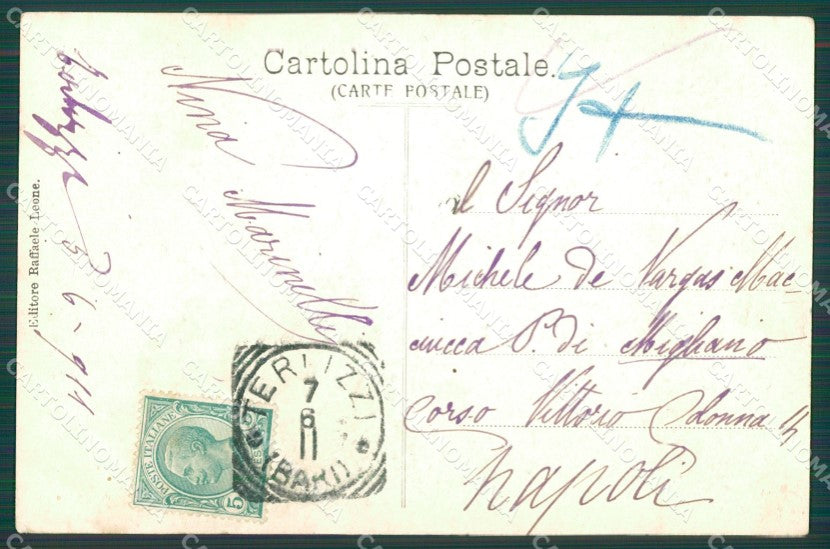 Cartolina Postale.
(CARTE POSTALE)
Nina
Marinelli
6-911
Editore Raffaele Leone.
Il Signor
Michele de Vargas Mac-
ciucca P. di Migliano
Corso Vittorio donna
Napoli
TERLIZZI
7
6
11
(BARI)
POSTE ITALIANE
5
CARTOLINOMANIA